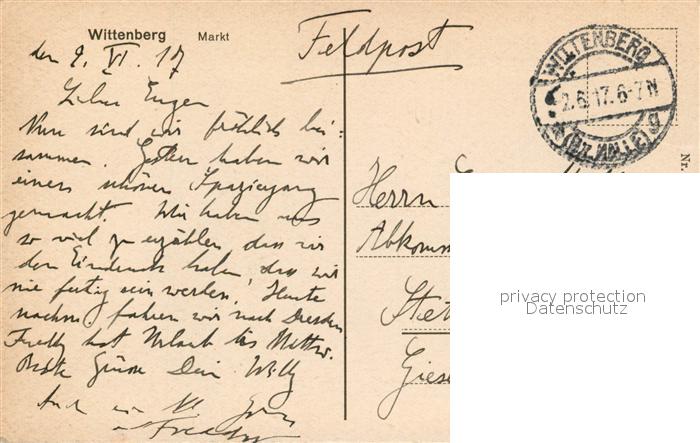 Wittenberg Markt
den 9. VI. 17
Feldpost
WITTENBERG
2.6.17. 6-7N
(Bz. HALLE) g
Lieber Eugen
Nun sind wir fröhlich bei=
sammen. Gestern haben wir
einen schönen Spaziergang
gemacht. Wir haben uns
so viel zu erzählen, dass wir
den Eindruck haben, dass wir
nie fertig sein werden. Heute
nachm. fahren wir nach Dresden
Fredy hat Urlaub bis Mittw.
Beste Grüsse Dein Willy
Auch ein
Herrn
Abkomm
Stet
Giese
Nr.
privacy protection
Datenschutz